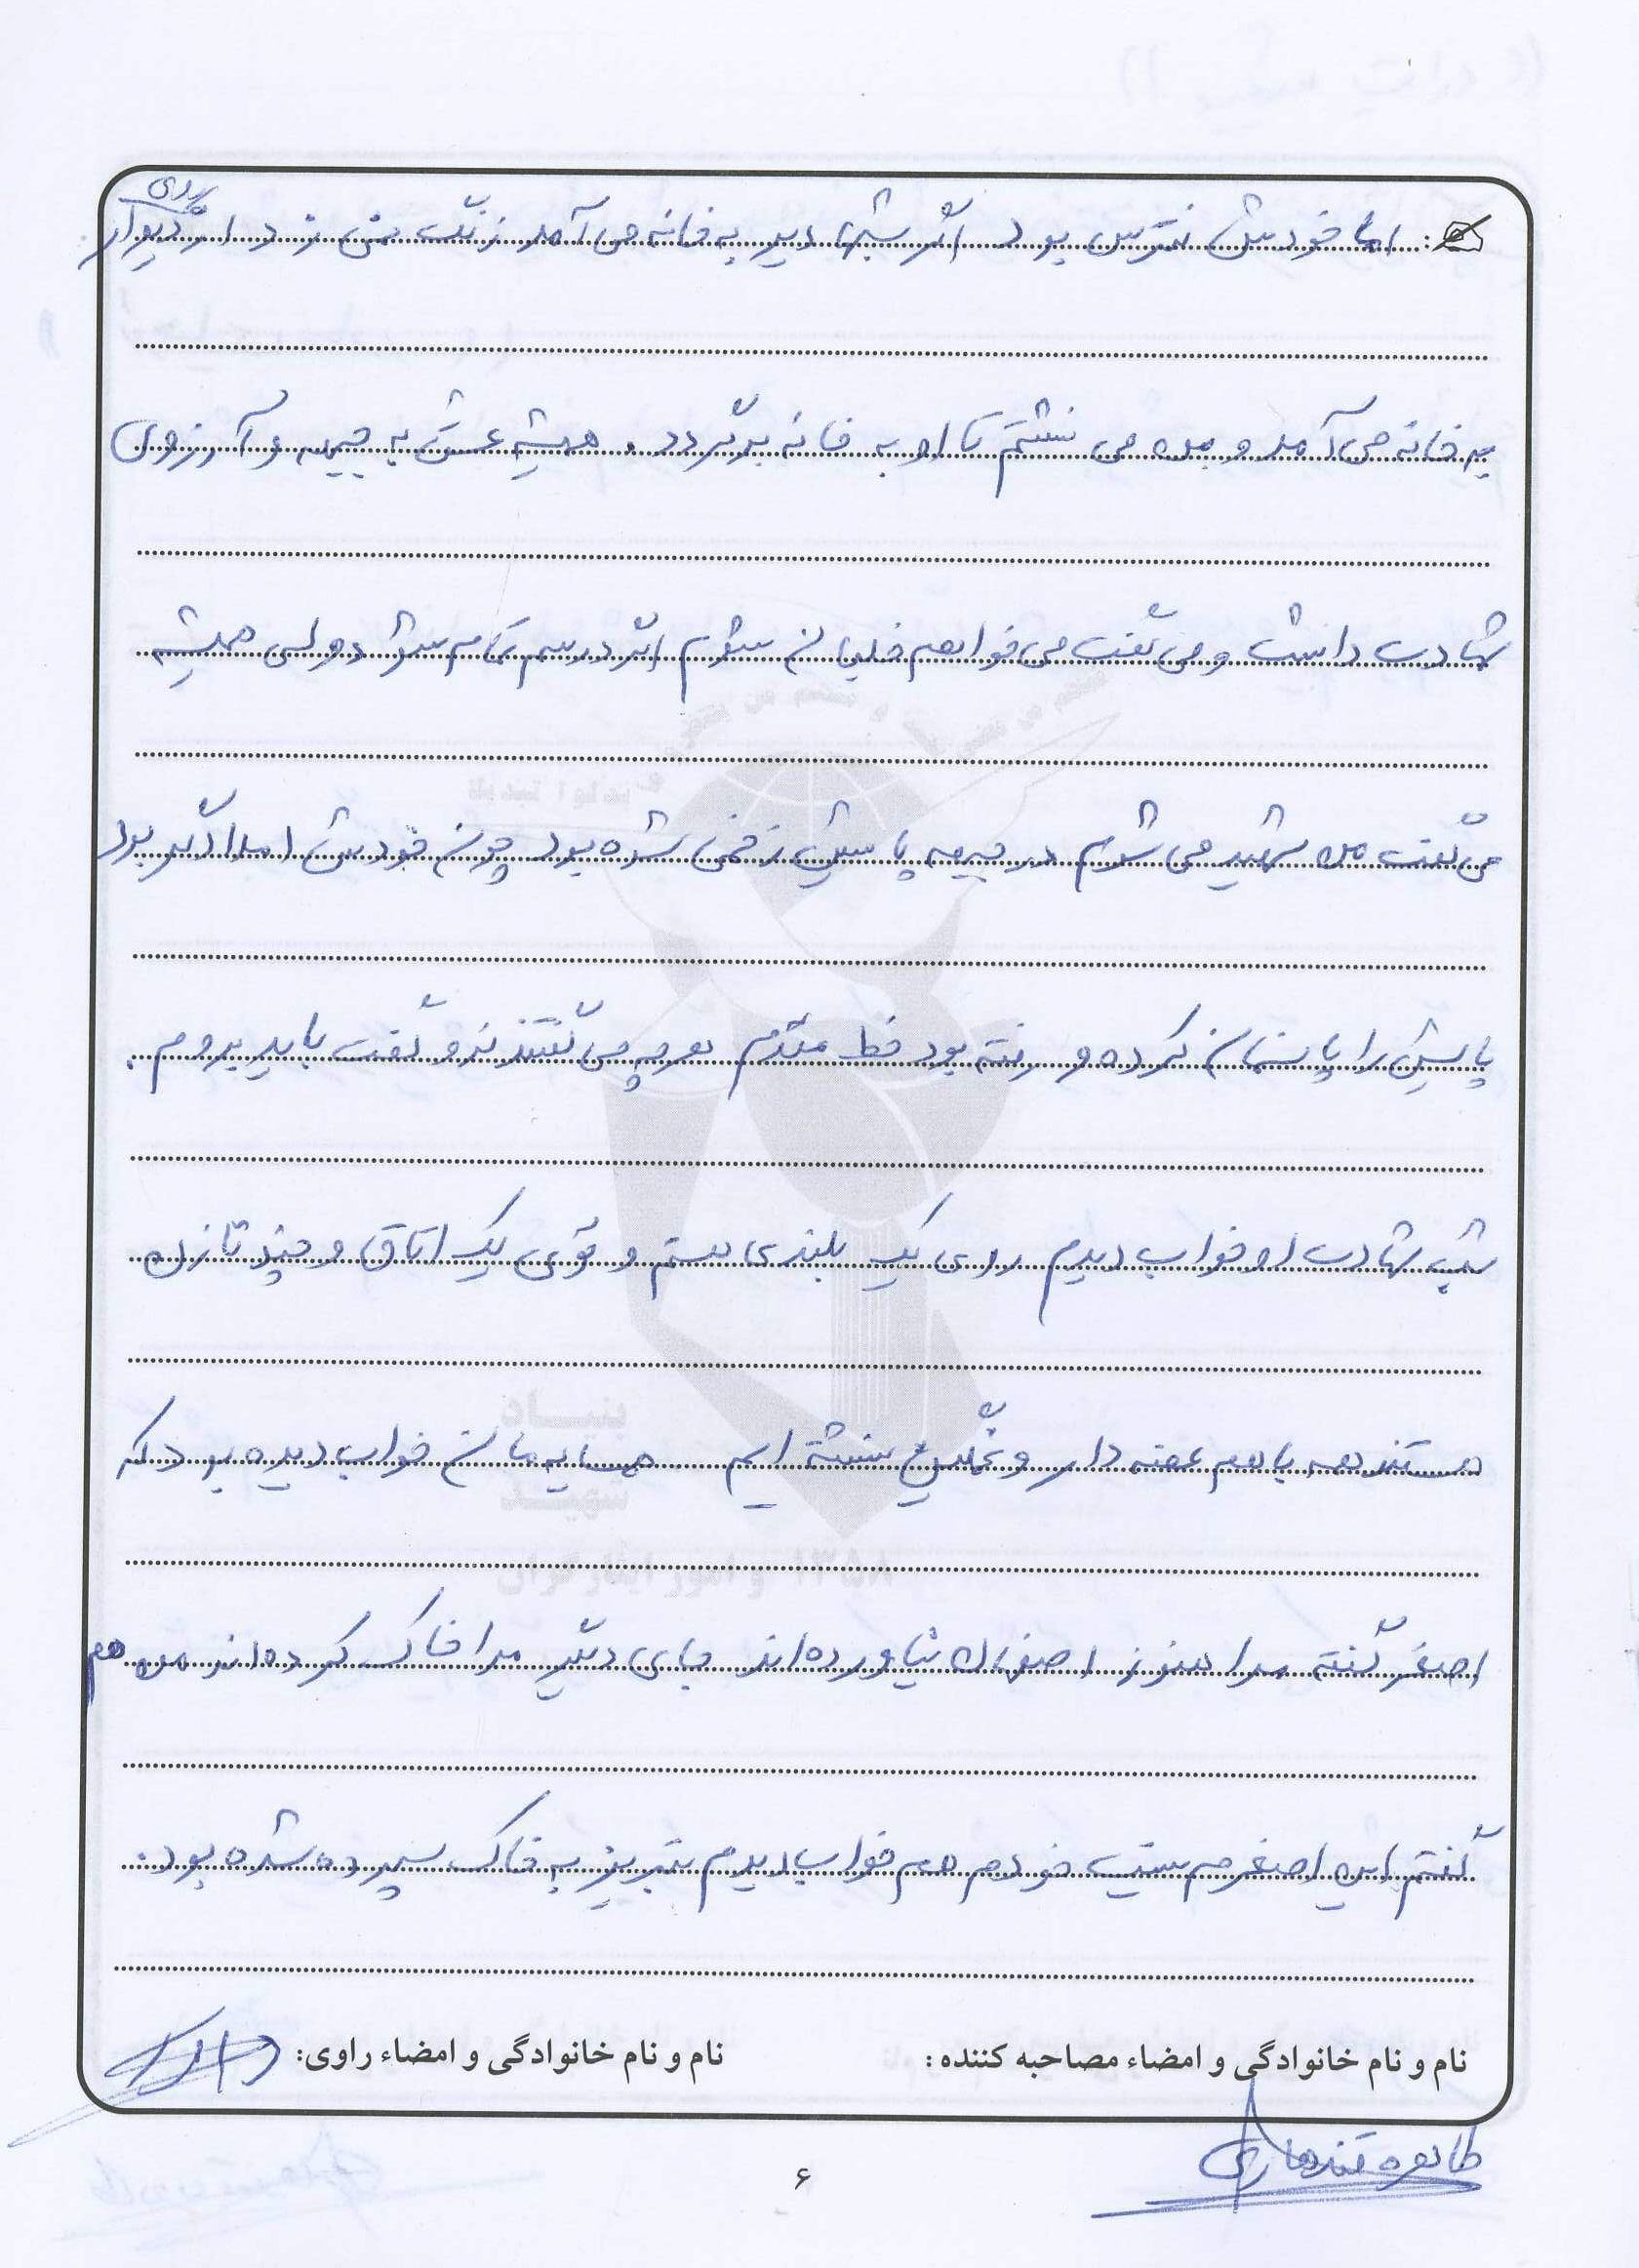 اما خودش نترس بود اگر شبها دیر به خانه می آمد زنگ نمی زد از روی دیوار
به خانه می آمد و من می نشستم تا او به خانه برگردد. همیشه عشق به جبهه و آرزوی
شهادت داشت و می گفت می خواهم خلبان شوم اگر درسم تمام شود ولی همیشه
می گفت من شهید می شوم در جبهه پاشیش زخمی شده بود چون خودش امدادگر بود
پایش را پانسمان کرده و رفته بود خط مقدم هر چه می گفتند نرو گفت باید بروم.
شب شهادت او خواب دیدم روی یک بلندی هستم و توی یک اتاق و چند تا زن
هستند همه با هم غصه دار و غمگین نشسته ایم همسایه مان خواب دیده بود که
اصغر گفته مرا هنوز اصفهان نیاورده اند جای دیگر مرا خاک کرده اند من هم
گفتم این اصغرم نیست خودم هم خواب دیدم تبریز به خاک سپرده شده بود.
نام و نام خانوادگی و امضاء مصاحبه کننده: نام و نام خانوادگی و امضاء راوی:
طاهره قندهاری
۶
بنیاد
شهید
و امور ایثارگران ۱۳۵۸